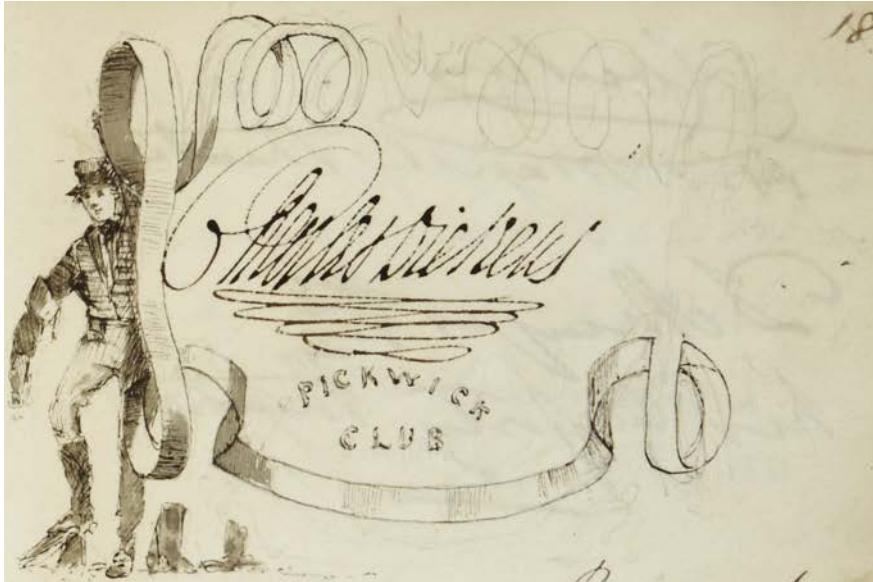 18
Charles Dickens
PICKWICK
CLUB